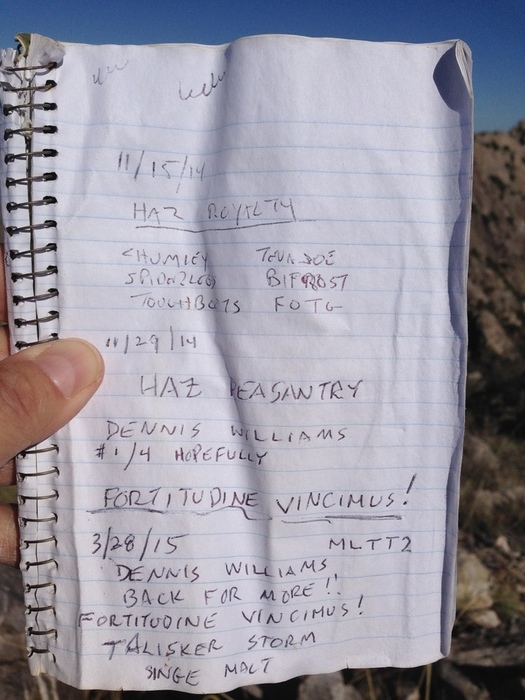 11/15/14
HAZ ROYALTY
CHUMLEY TUNA JOE
SPIDERLEGS BIFROST
TOUGHBOOTS FOTG
11/29/14
HAZ PEASANTRY
DENNIS WILLIAMS
#1/4 HOPEFULLY
FORTITUDINE VINCIMUS!
3/28/15 MLTT2
DENNIS WILLIAMS
BACK FOR MORE!!
FORTITUDINE VINCIMUS!
TALISKER STORM
SINGE MALT